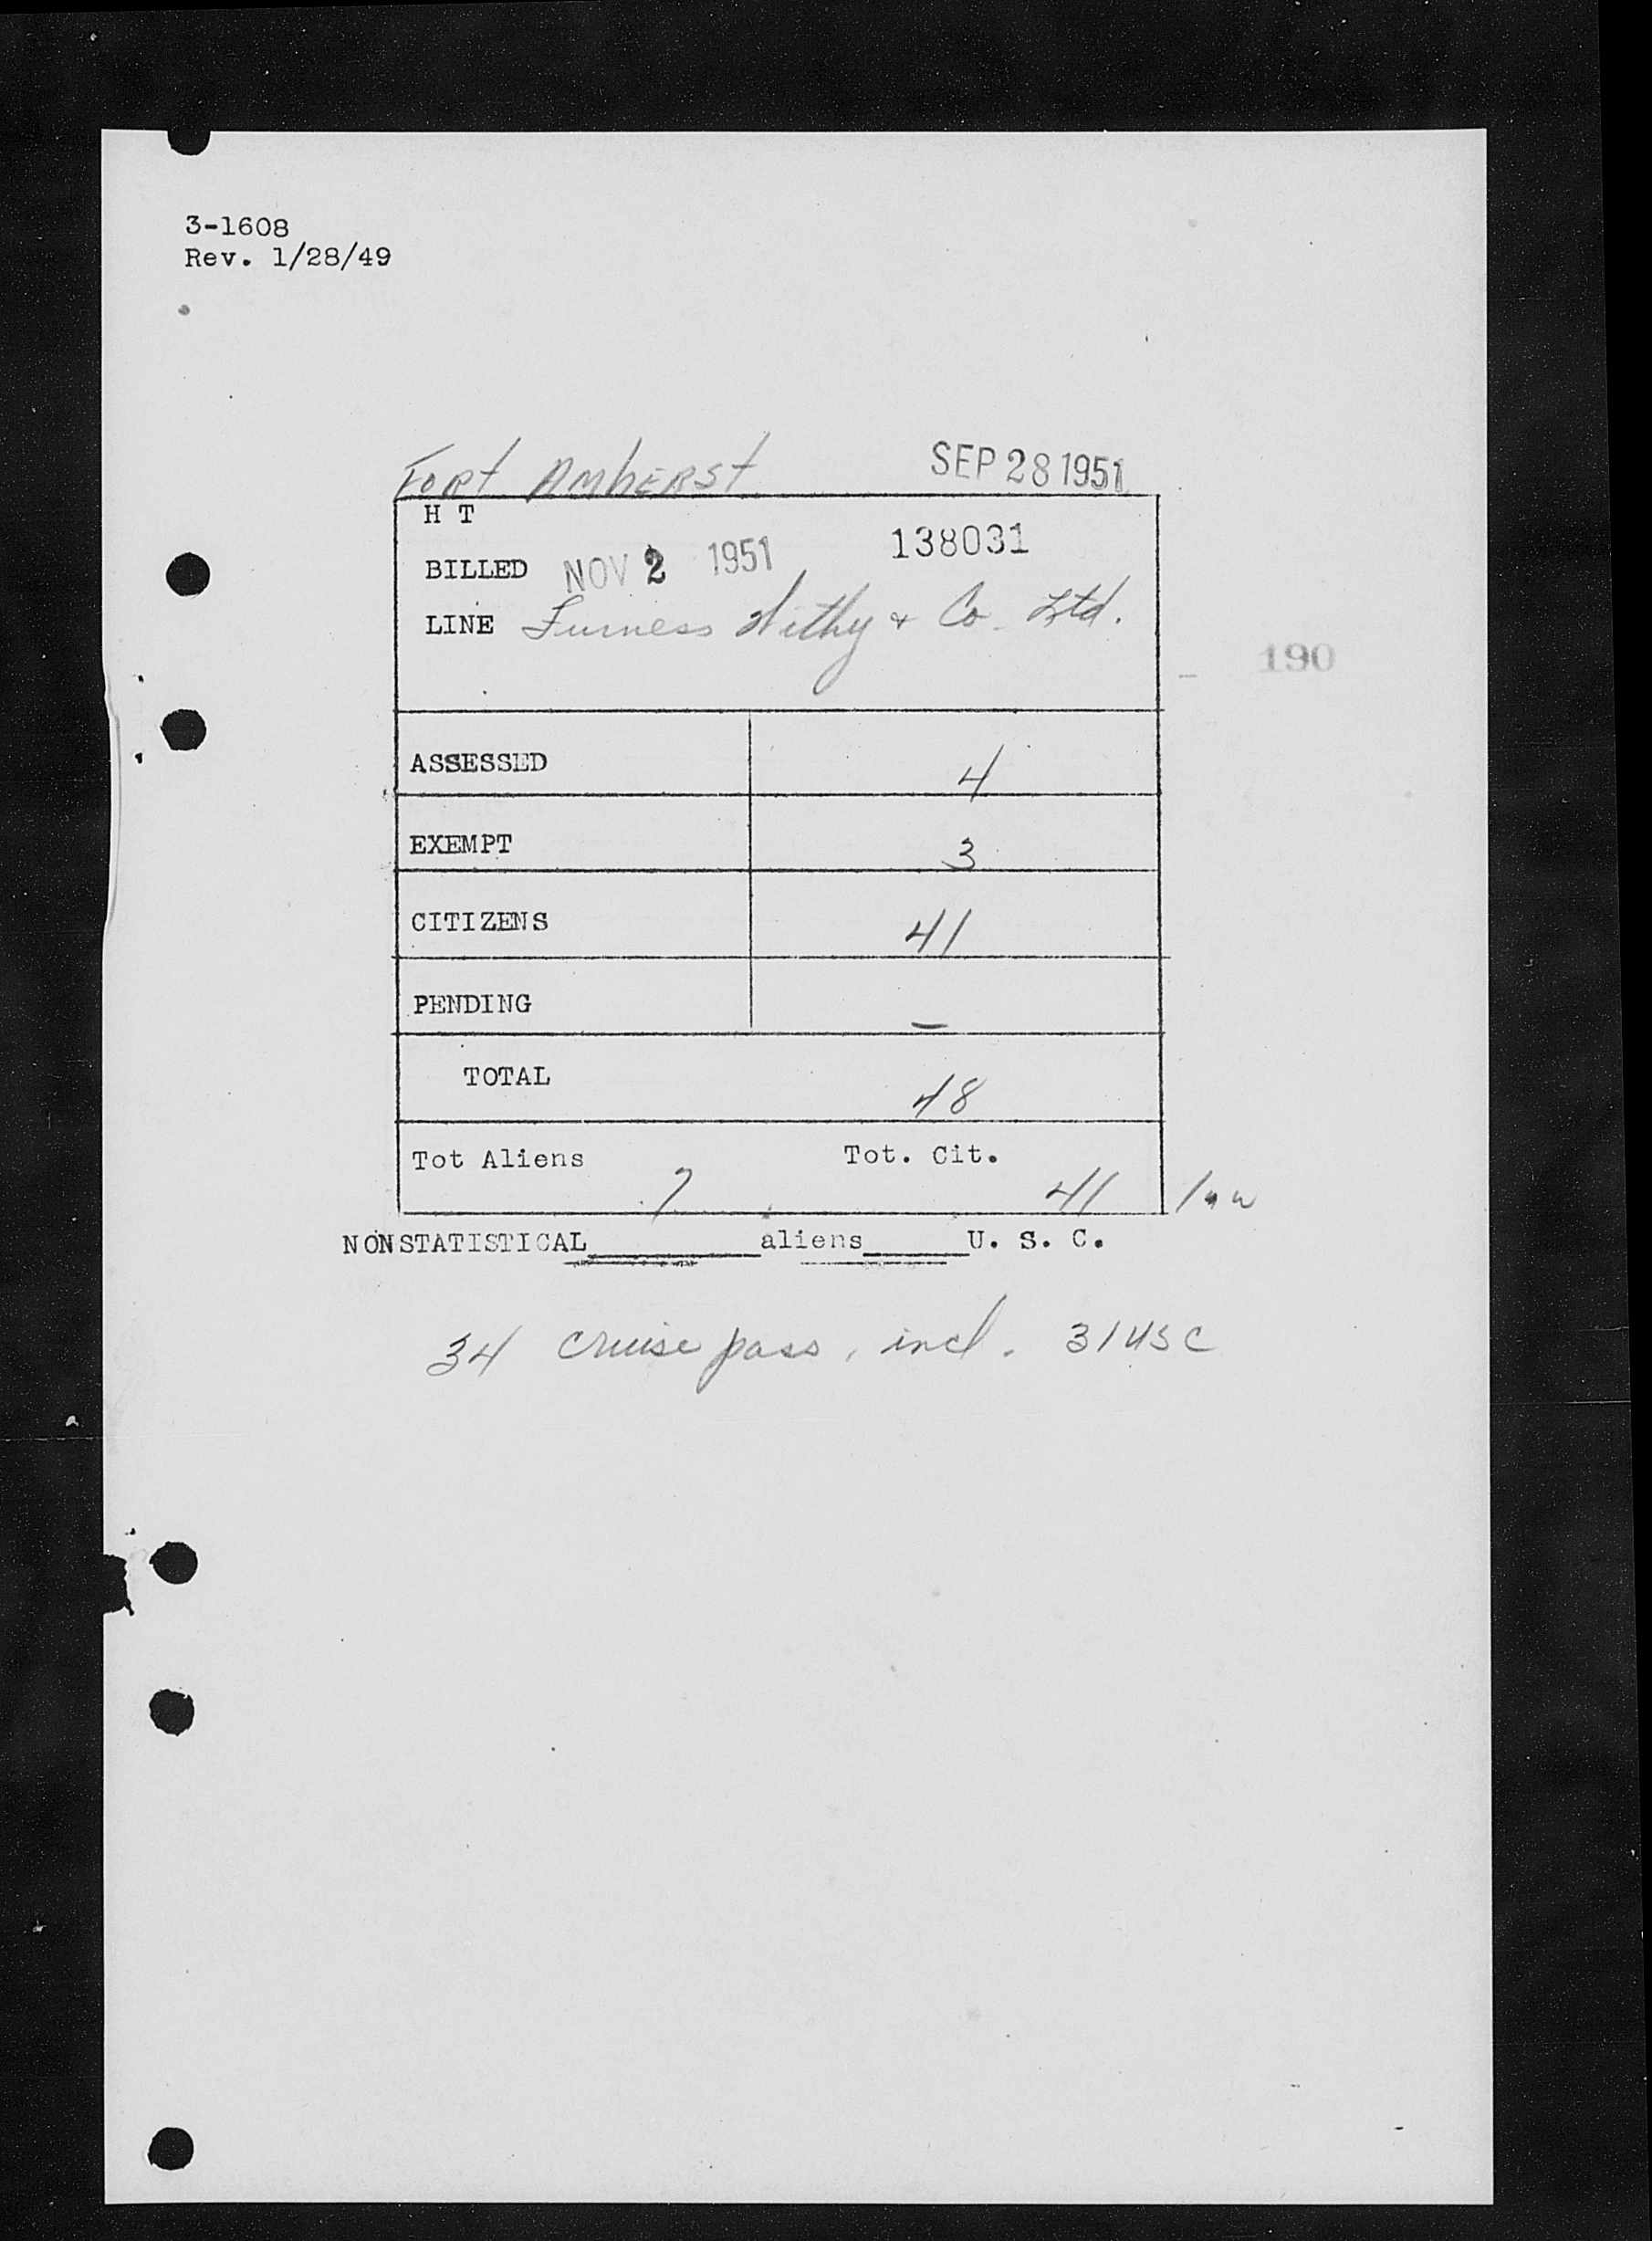 3-1608
Rev. 1/28/49
Fort Amherst SEP 28 1951
H T
BILLED NOV 2 1951 138031
LINE Furness Withy & Co. Ltd.
190
ASSESSED 4
EXEMPT 3
CITIZENS 41
PENDING –
TOTAL 48
Tot Aliens Tot. Cit.
7 41
NONSTATISTICAL________aliens_____U. S. C.
34 cruise pass, incl. 31 USC